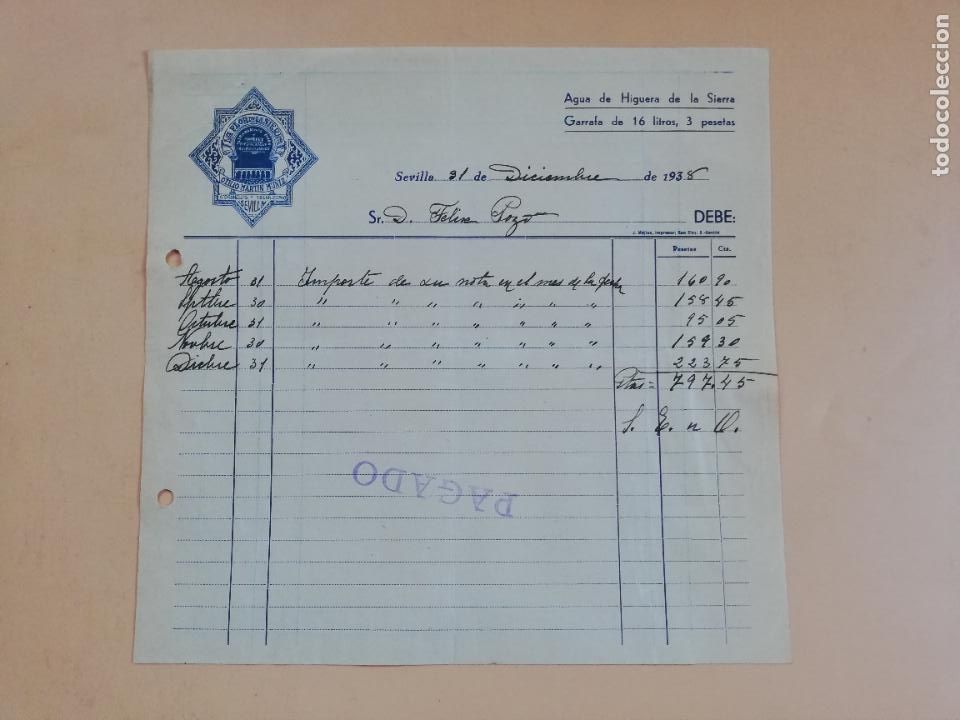 Agua de Higuera de la Sierra
Garrafa de 16 litros, 3 pesetas
LA FLOR DE LA SIERRA
OTILIO MARTIN MUÑIZ
SEVILLA
Sevilla 31 de Diciembre de 1938
Sr. D. Felix Pozo DEBE:
Pesetas Cts.
Agosto 31 Importe de su nota en el mes de la fecha 160 90
Spttbre 30 " " " " " " " " 158 45
Octubre 31 " " " " " " " " 95 05
Novbre 30 " " " " " " " " 159 30
Dicbre 31 " " " " " " " " 223 75
Ptas = 797.45
S. E. u O.
PAGADO
todocoleccion